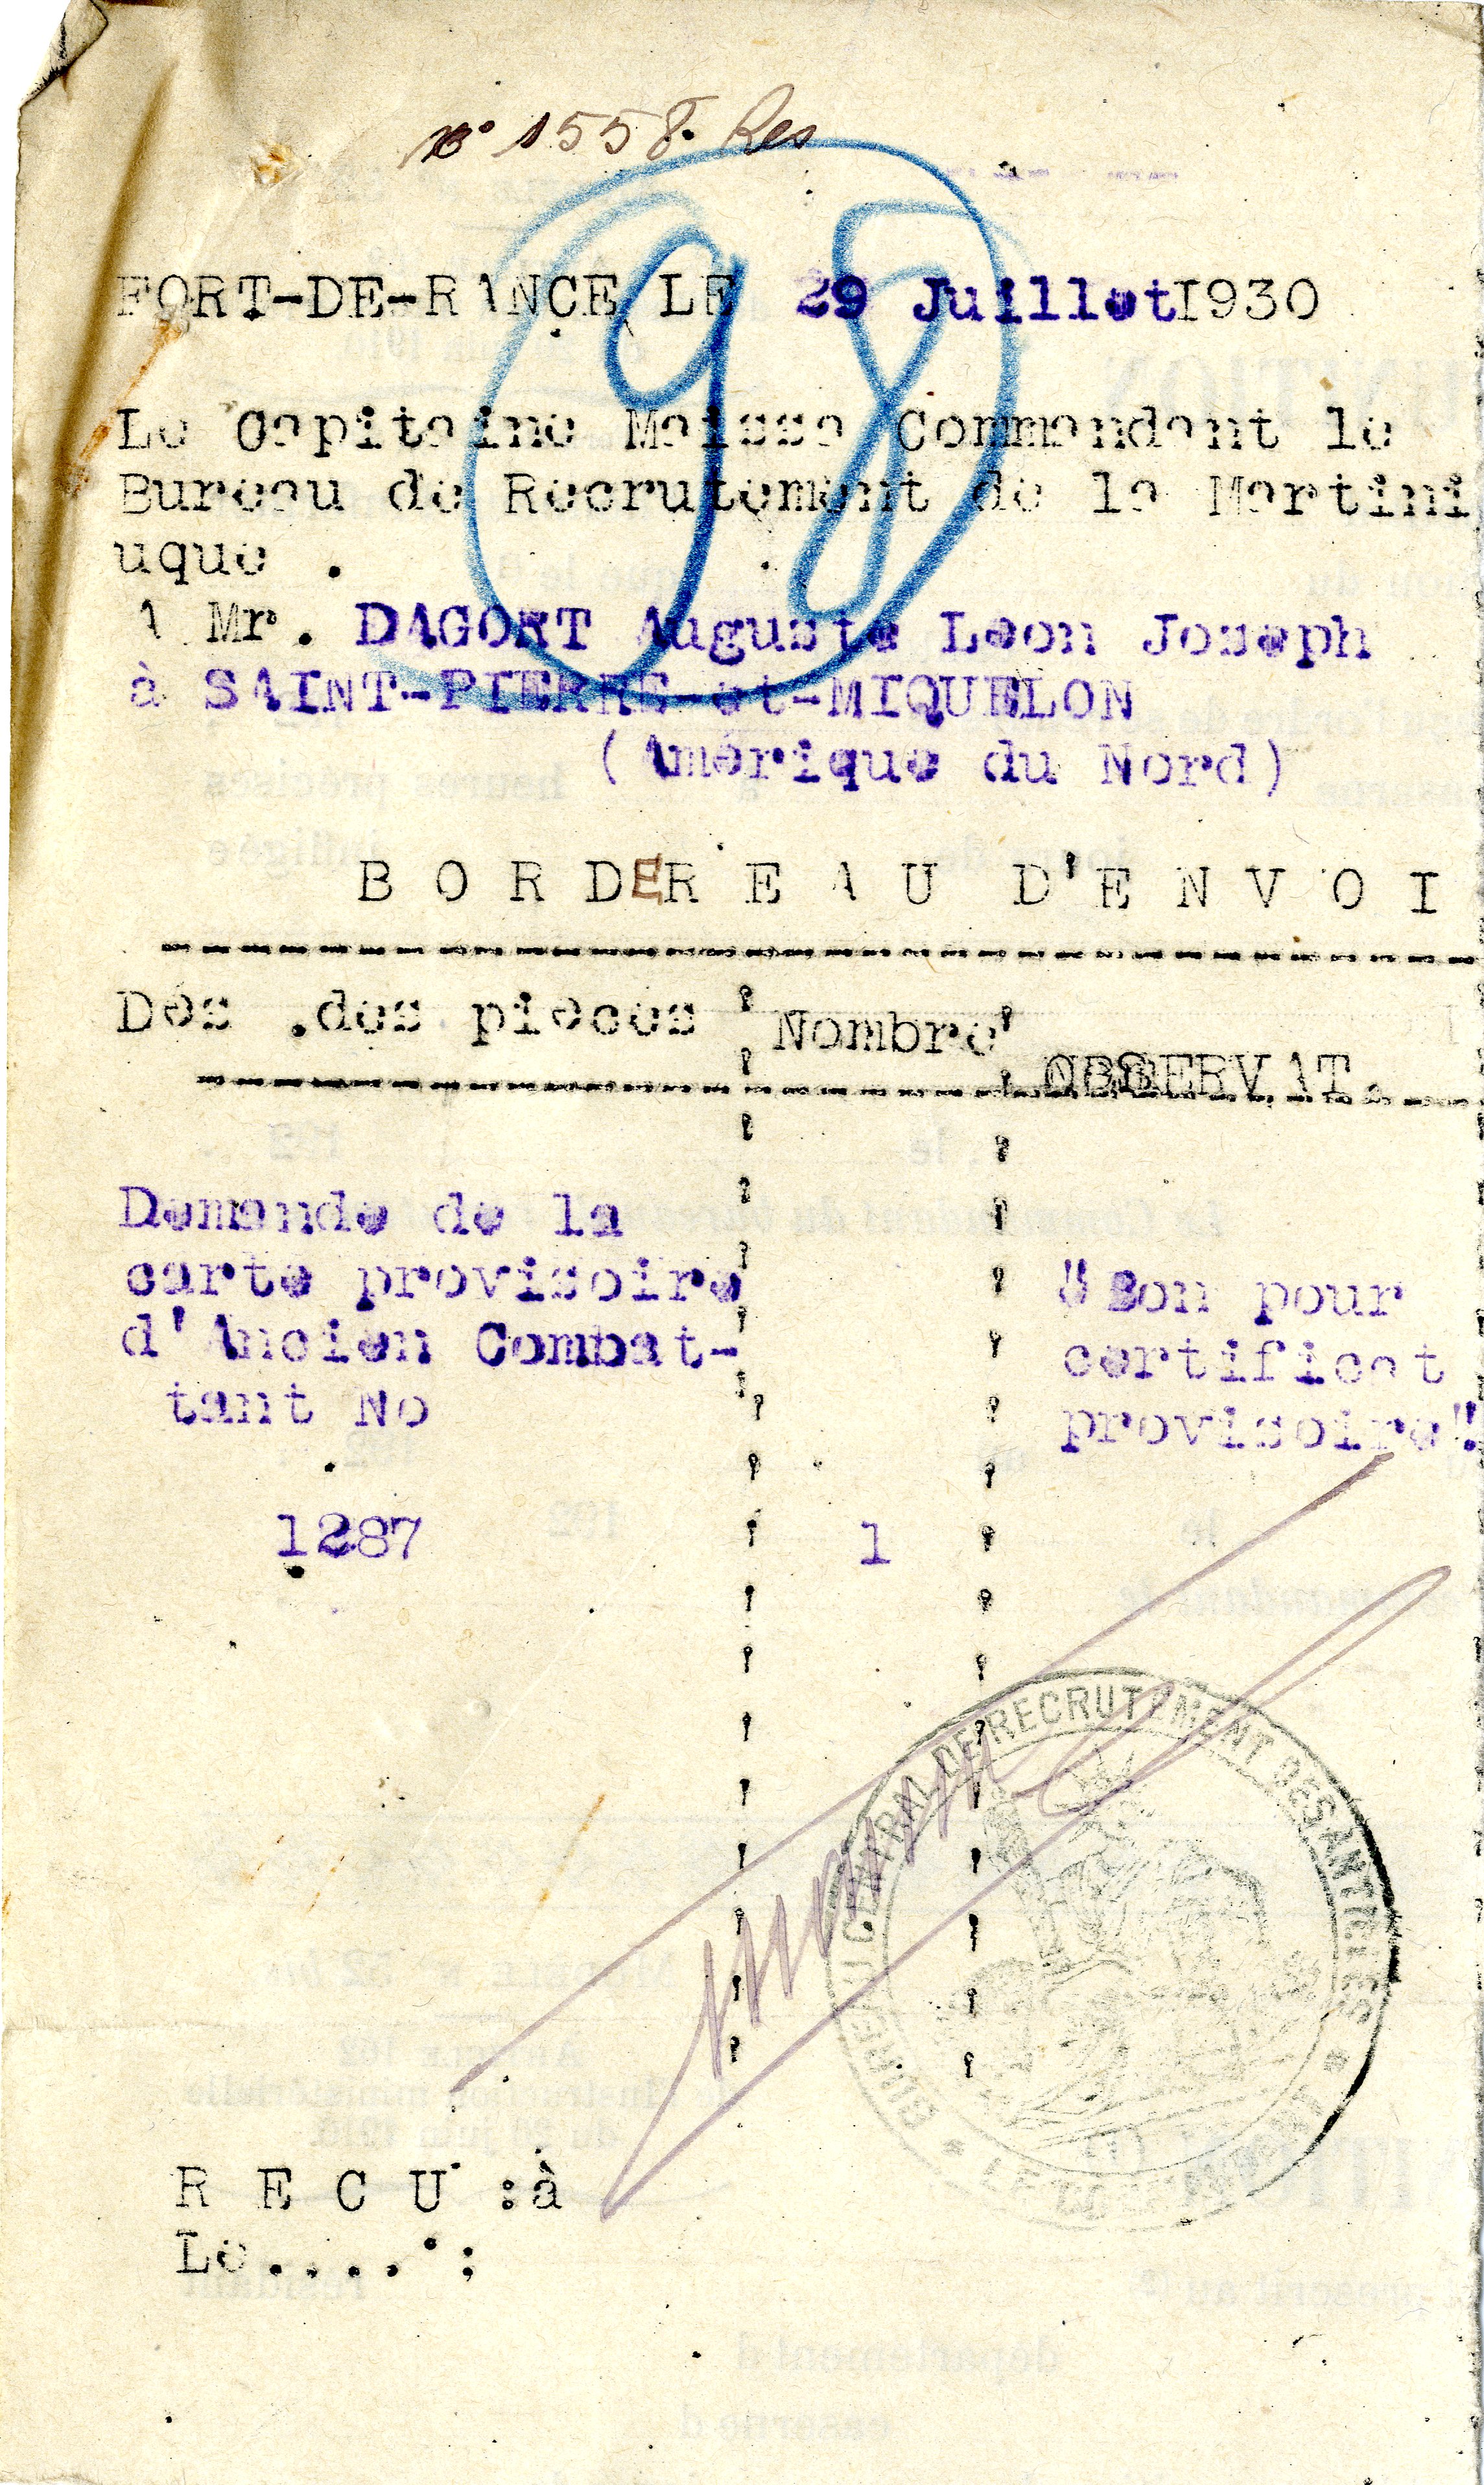 n° 1558. Res
98
FORT-DE-RANCE LE 29 Juillet 1930
Le Capitaine Maisse Commandant le
Bureau de Recrutement de la Martini
uque .
A Mr. DAGORT Auguste Leon Joseph
à SAINT-PIERRE-et-MIQUELON
(Amérique du Nord)
BORDEREAU D'ENVOI
Des .des pieces Nombre OBSERVAT.
Demande de la
carte provisoire
d'Ancien Combat-
tant No
"Bon pour
certificat
provisoire"
1287 1
BUREAU CENTRAL DE RECRUTEMENT DES ANTILLES * LE COMMANDANT *
RECU :à
Le.....;